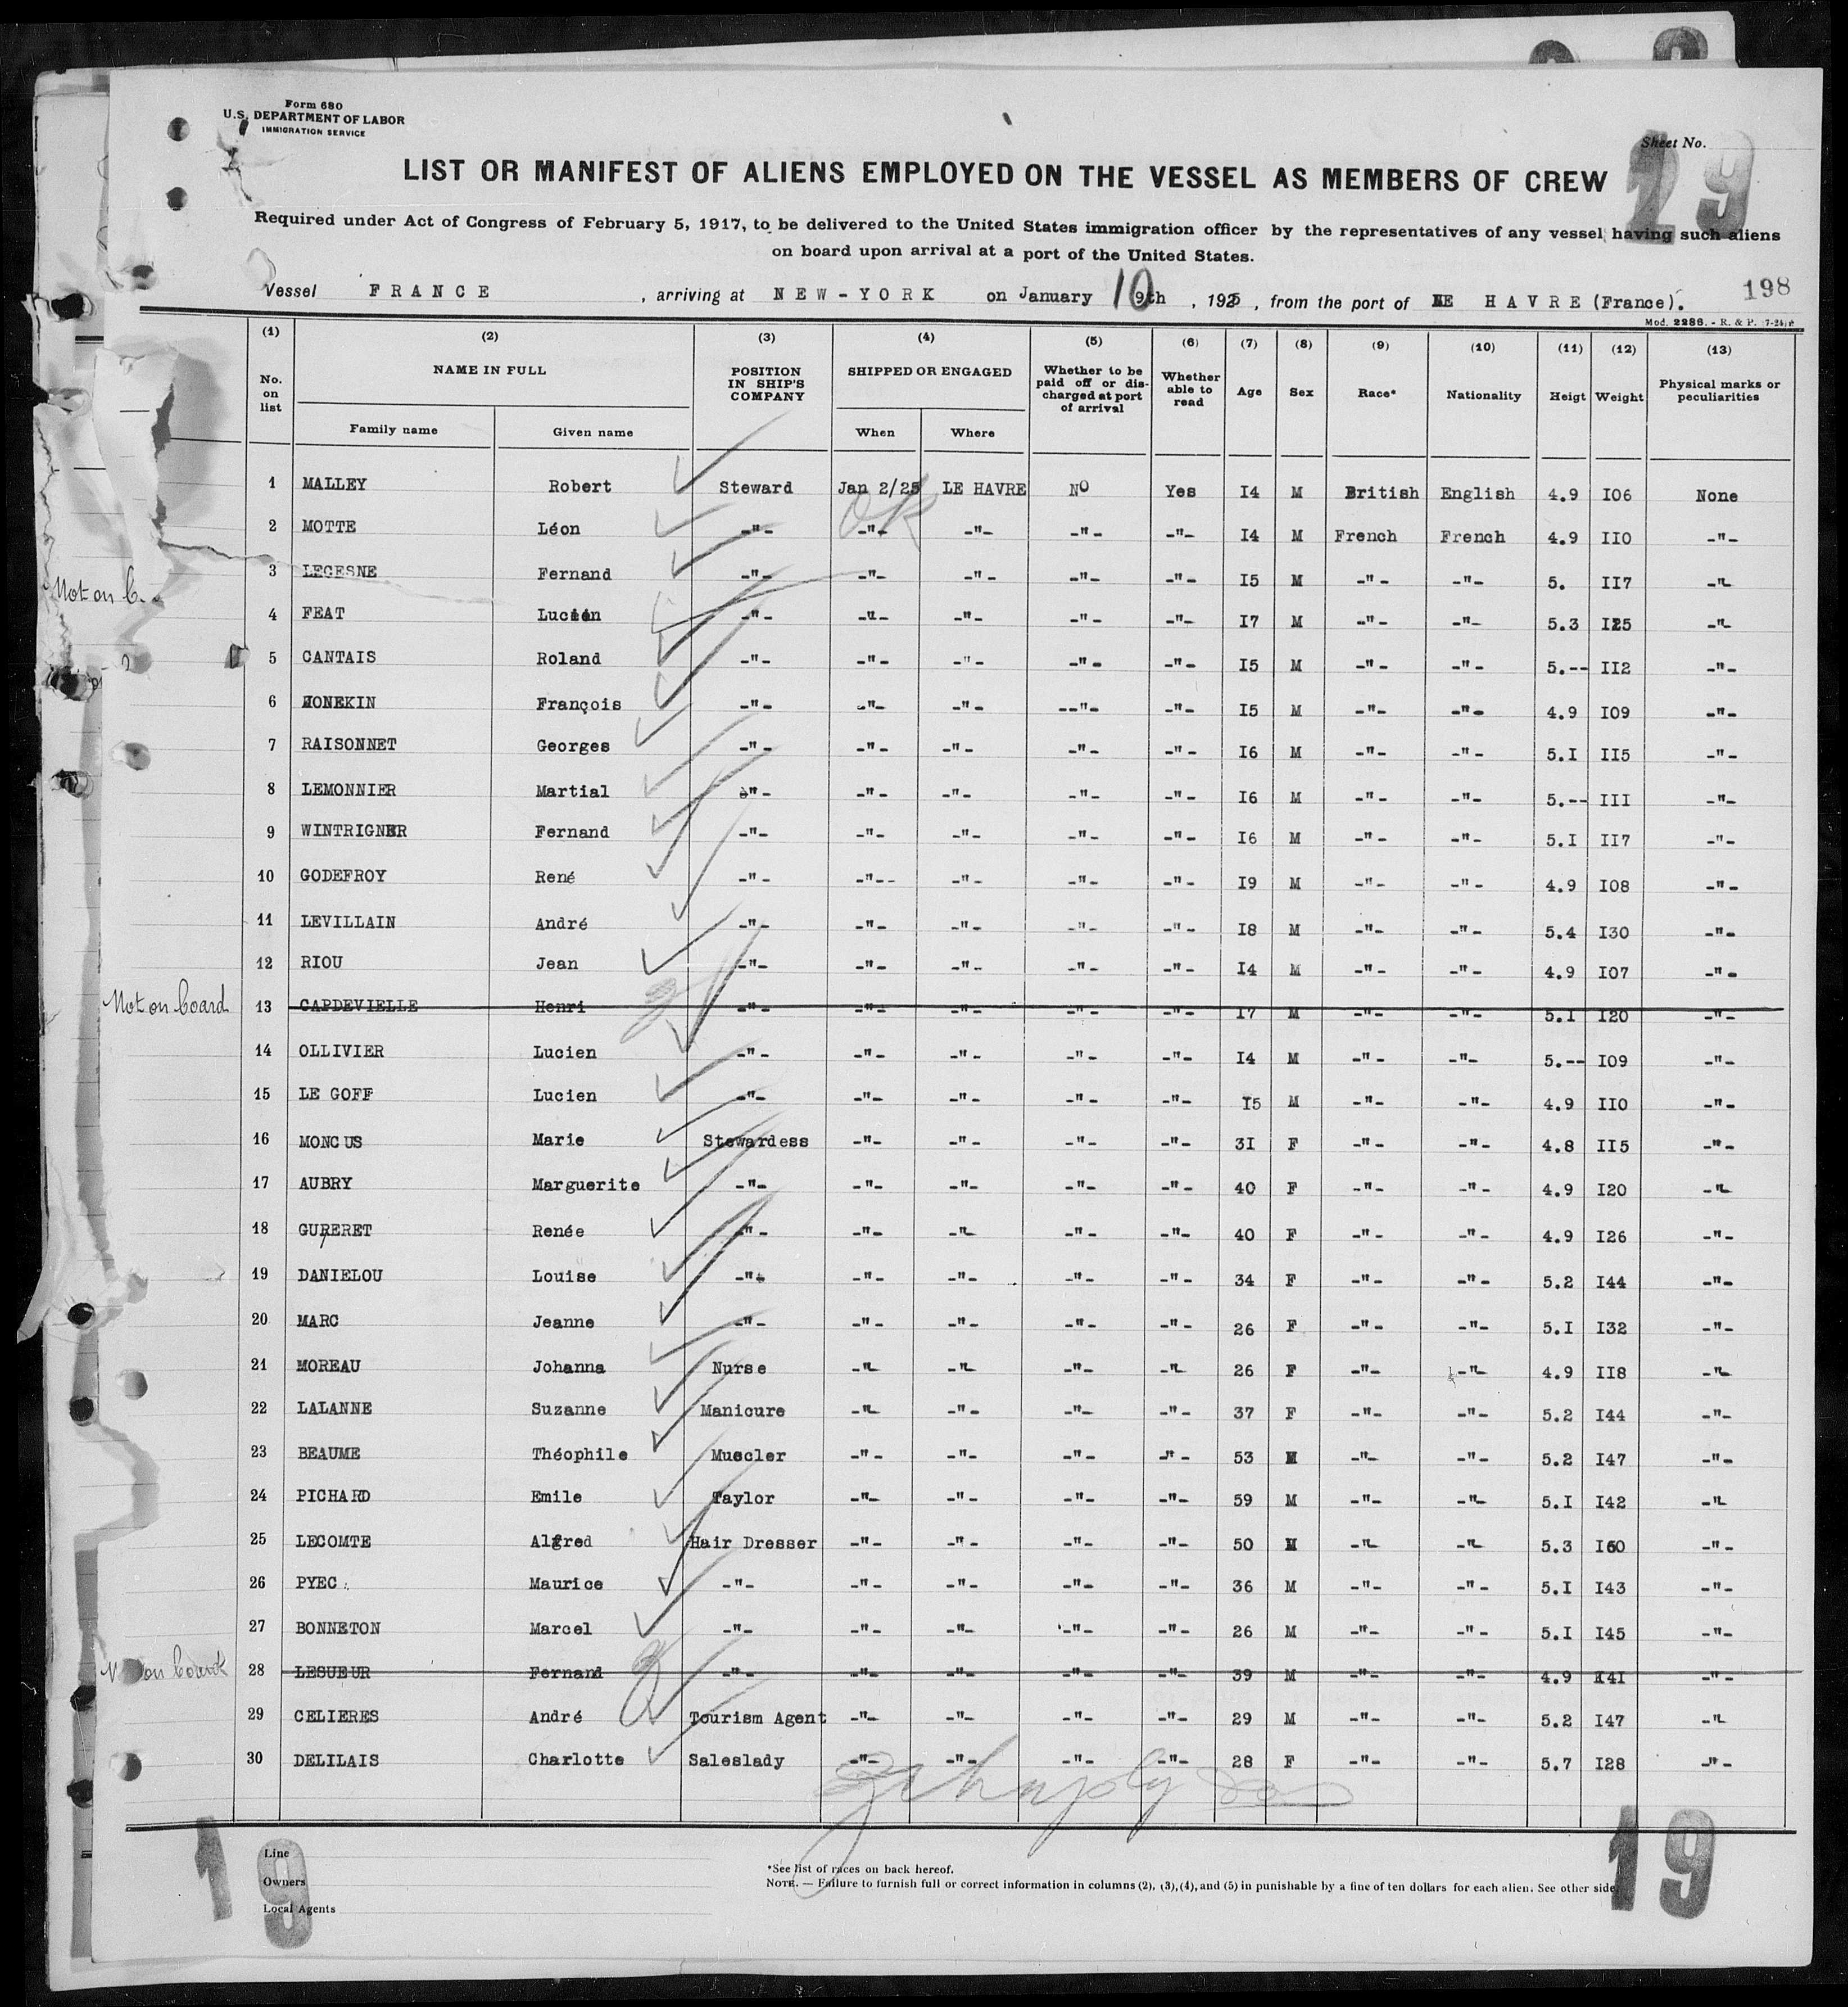 Form 680
U.S. DEPARTMENT OF LABOR
IMMIGRATION SERVICE
Sheet No.
19
LIST OR MANIFEST OF ALIENS EMPLOYED ON THE VESSEL AS MEMBERS OF CREW
Required under Act of Congress of February 5, 1917, to be delivered to the United States immigration officer by the representatives of any vessel having such aliens
on board upon arrival at a port of the United States.
Vessel FRANCE , arriving at NEW-YORK on January 10 9th , 1925 , from the port of LE HAVRE (France).
198
Mod. 2286. - R. & P.
(1) (2) (3) (4) (5) (6) (7) (8) (9) (10) (11) (12) (13)
No. on list NAME IN FULL POSITION IN SHIP'S COMPANY SHIPPED OR ENGAGED Whether to be paid off or discharged at port of arrival Whether able to read Age Sex Race* Nationality Heigt Weight Physical marks or peculiarities
Family name Given name When Where
1 MALLEY Robert Steward Jan 2/25 LE HAVRE NO Yes I4 M British English 4.9 I06 None
ok
2 MOTTE Léon -"- -"- -"- -"- -"- I4 M French French 4.9 II0 -"-
3 LECESNE Fernand -"- -"- -"- -"- -"- I5 M -"- -"- 5. II7 -"-
Not on b.
4 FEAT Lucien -"- -"- -"- -"- -"- I7 M -"- -"- 5.3 I25 -"-
5 CANTAIS Roland -"- -"- -"- -"- -"- I5 M -"- -"- 5.-- II2 -"-
6 JONEKIN François -"- -"- -"- --"- -"- I5 M -"- -"- 4.9 I09 -"-
7 RAISONNET Georges -"- -"- -"- -"- -"- I6 M -"- -"- 5.I II5 -"-
8 LEMONNIER Martial -"- -"- -"- -"- -"- I6 M -"- -"- 5.-- III -"-
9 WINTRIGNER Fernand -"- -"- -"- -"- -"- I6 M -"- -"- 5.I II7 -"-
10 GODEFROY René -"- -"-- -"- -"- -"- I9 M -"- -"- 4.9 I08 -"-
11 LEVILLAIN André -"- -"- -"- -"- -"- I8 M -"- -"- 5.4 I30 -"-
12 RIOU Jean -"- -"- -"- -"- -"- I4 M -"- -"- 4.9 I07 -"-
Not on board 13 CAPDEVIELLE Henri -"- -"- -"- -"- -"- I7 M -"- -"- 5.I I20 -"-
14 OLLIVIER Lucien -"- -"- -"- -"- -"- I4 M -"- -"- 5.-- I09 -"-
15 LE GOFF Lucien -"- -"- -"- -"- -"- I5 M -"- -"- 4.9 II0 -"-
16 MONCUS Marie Stewardess -"- -"- -"- -"- 3I F -"- -"- 4.8 II5 -"-
17 AUBRY Marguerite -"- -"- -"- -"- -"- 40 F -"- -"- 4.9 I20 -"-
18 GURERET Renée -"- -"- -"- -"- -"- 40 F -"- -"- 4.9 I26 -"-
19 DANIELOU Louise -"- -"- -"- -"- -"- 34 F -"- -"- 5.2 I44 -"-
20 MARC Jeanne -"- -"- -"- -"- -"- 26 F -"- -"- 5.I I32 -"-
21 MOREAU Johanna Nurse -"- -"- -"- -"- 26 F -"- -"- 4.9 II8 -"-
22 LALANNE Suzanne Manicure -"- -"- -"- -"- 37 F -"- -"- 5.2 I44 -"-
23 BEAUME Théophile Muscler -"- -"- -"- -"- 53 M -"- -"- 5.2 I47 -"-
24 PICHARD Emile Taylor -"- -"- -"- -"- 59 M -"- -"- 5.I I42 -"-
25 LECOMTE Alfred Hair Dresser -"- -"- -"- -"- 50 M -"- -"- 5.3 I60 -"-
26 PYEC Maurice -"- -"- -"- -"- -"- 36 M -"- -"- 5.I I43 -"-
27 BONNETON Marcel -"- -"- -"- -"- -"- 26 M -"- -"- 5.I I45 -"-
on board 28 LESUEUR Fernand -"- -"- -"- -"- -"- 39 M -"- -"- 4.9 I4I -"-
29 CELIERES André Tourism Agent -"- -"- -"- -"- 29 M -"- -"- 5.2 I47 -"-
30 DELILAIS Charlotte Saleslady -"- -"- -"- -"- 28 F -"- -"- 5.7 I28 -"-
19 19
Line
Owners
Local Agents
*See list of races on back hereof.
NOTE. — Failure to furnish full or correct information in columns (2), (3), (4), and (5) in punishable by a fine of ten dollars for each alien. See other side.